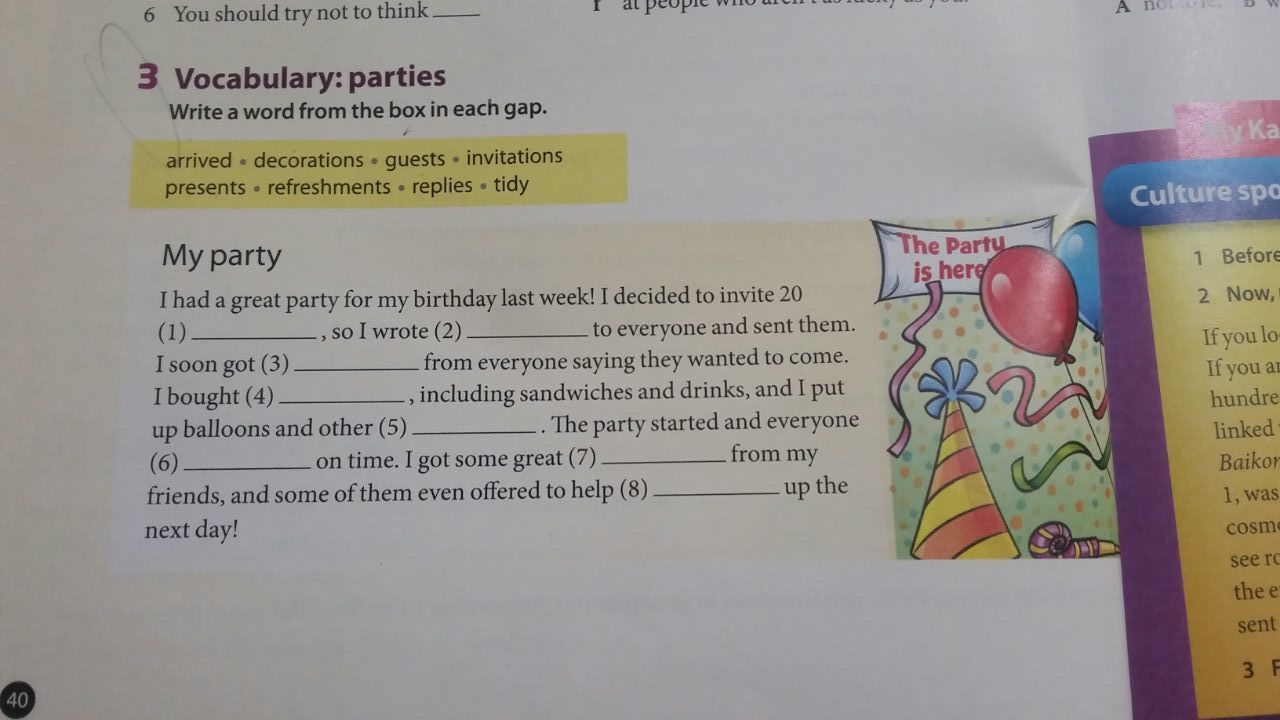 6 You should try not to think ____
at people who aren't as lucky as you.
A
B
3 Vocabulary: parties
Write a word from the box in each gap.
arrived • decorations • guests • invitations
presents • refreshments • replies • tidy
My party
I had a great party for my birthday last week! I decided to invite 20
(1) ____________, so I wrote (2) ____________ to everyone and sent them.
I soon got (3) ____________ from everyone saying they wanted to come.
I bought (4) ____________, including sandwiches and drinks, and I put
up balloons and other (5) ____________. The party started and everyone
(6) ____________ on time. I got some great (7) ____________ from my
friends, and some of them even offered to help (8) ____________ up the
next day!
The Party
is here
Ka
Culture spo
1 Before
2 Now,
If you lo
If you ar
hundre
linked
Baikon
1, was
cosmo
see ro
the e
sent
3 F
40